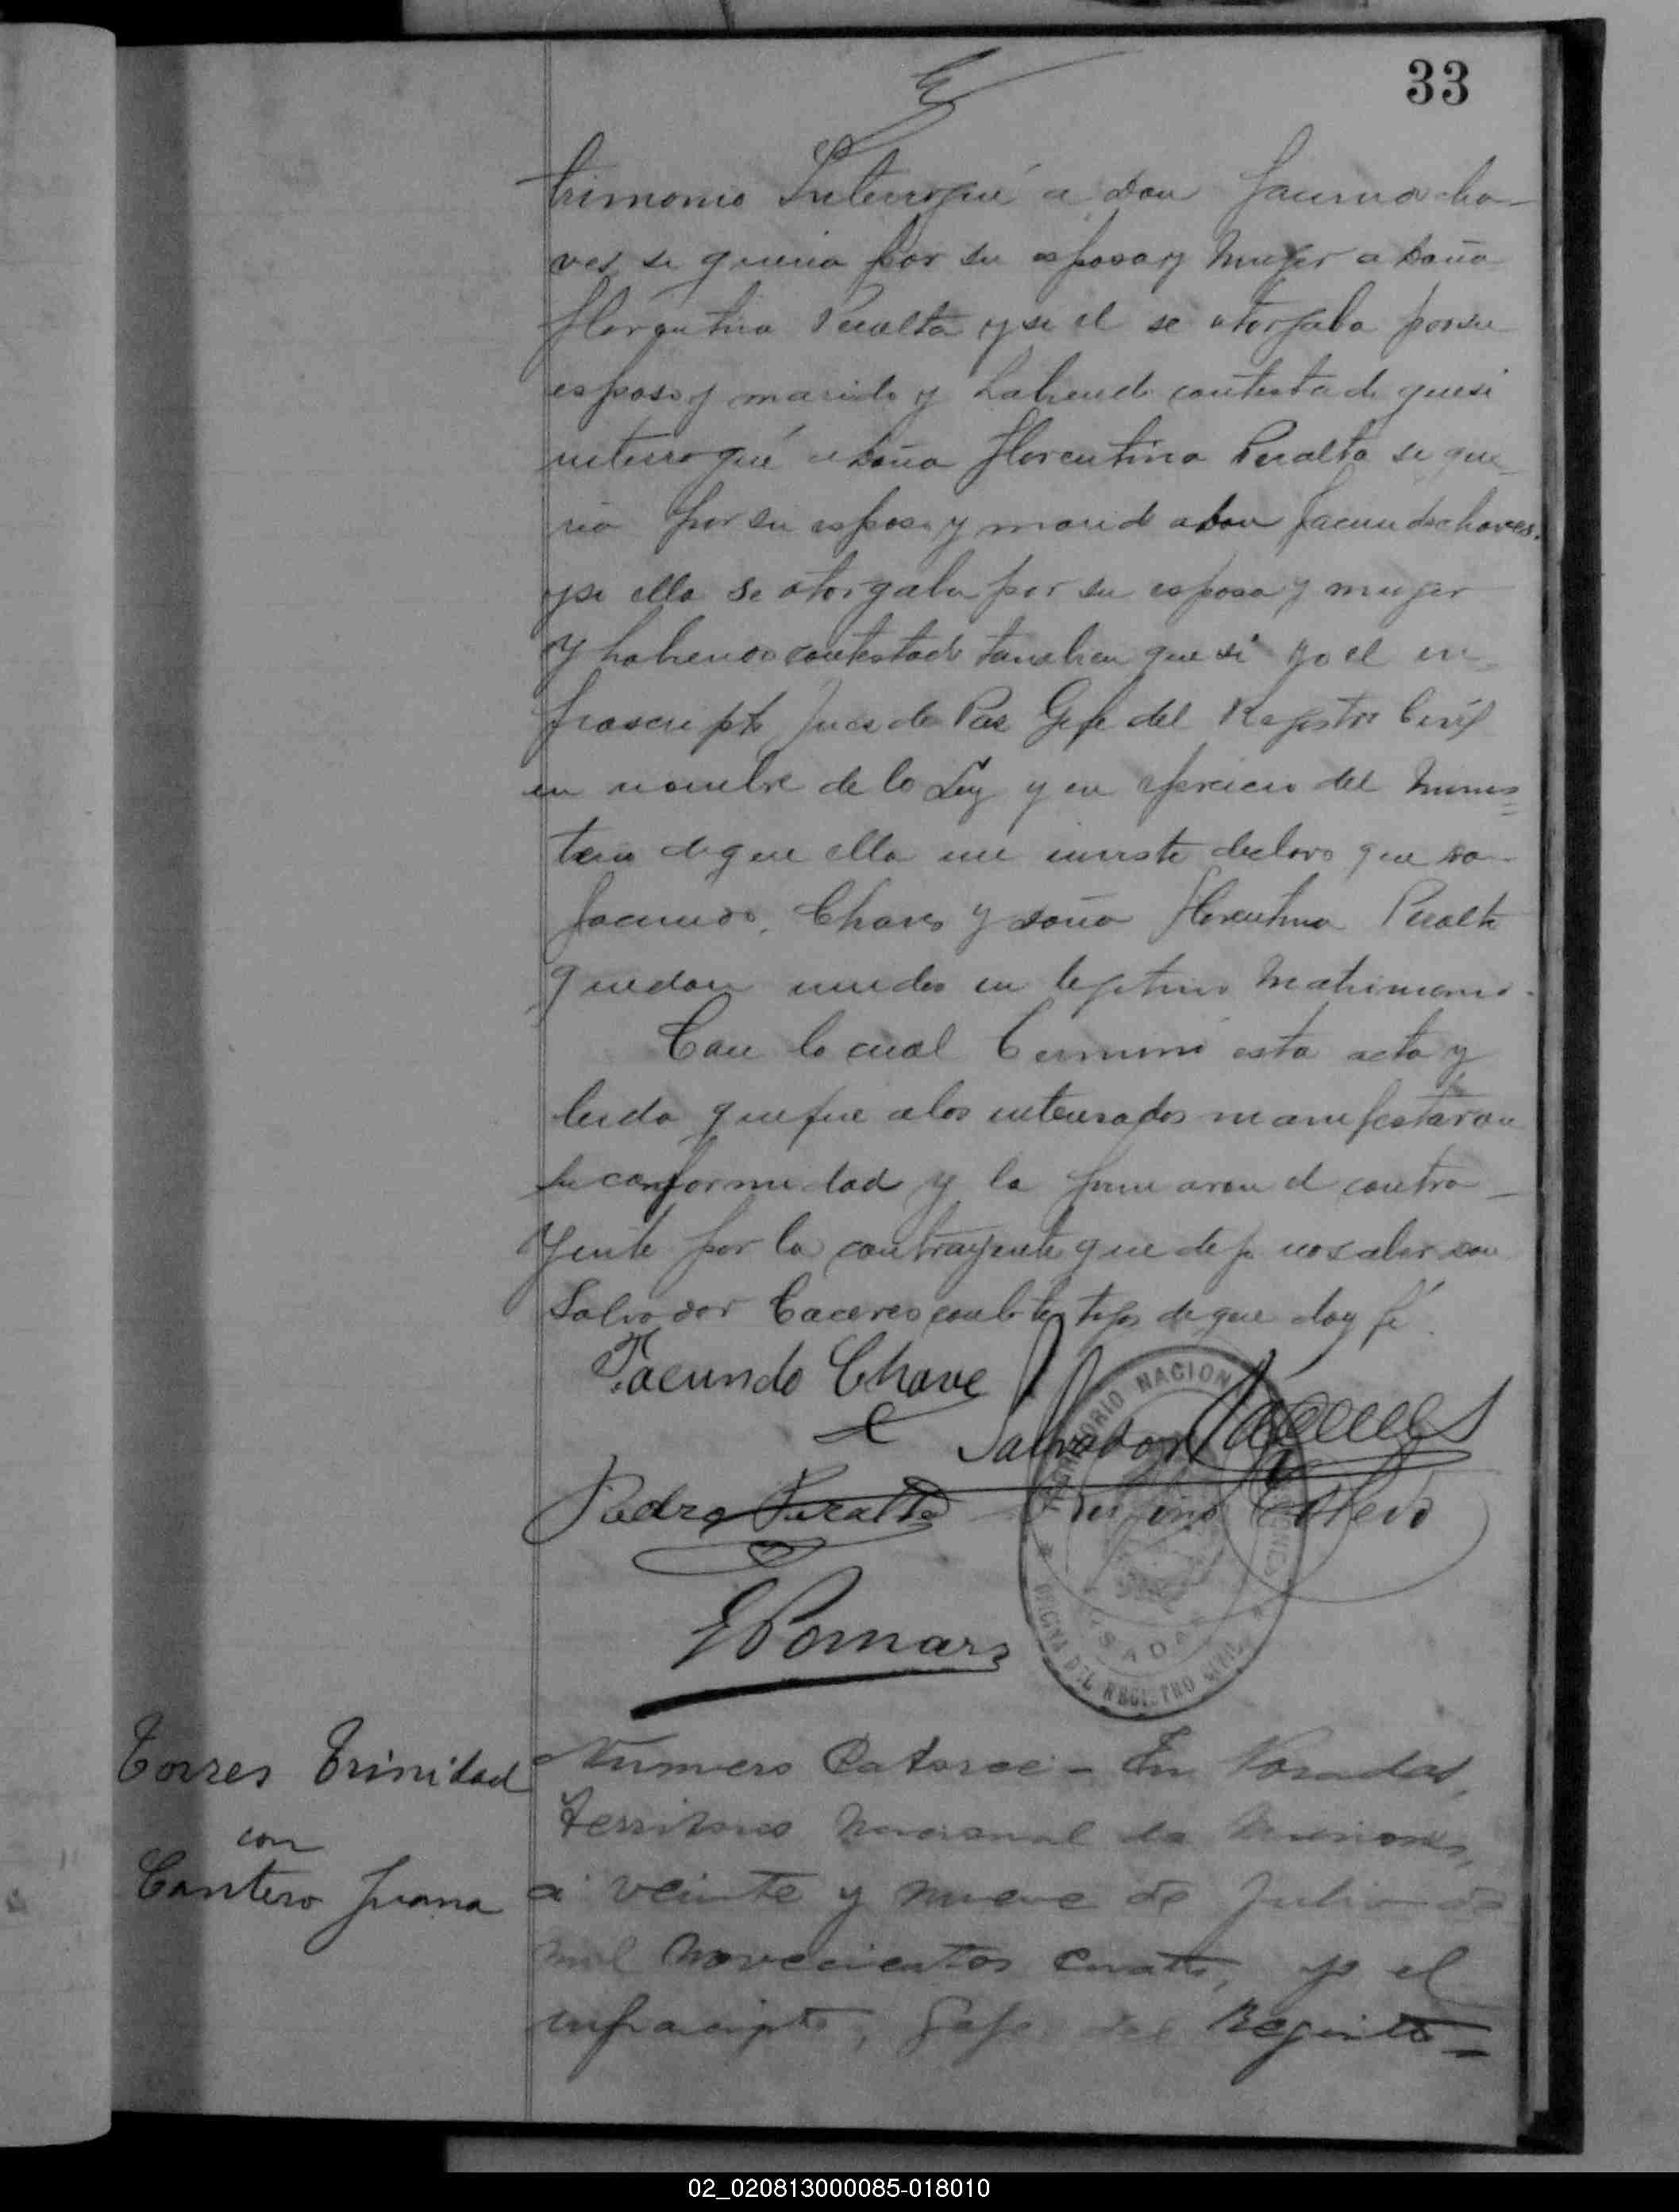 33
trimonio Interrogué a Don Facundo Cha-
ves si queria por su esposa y muger a Doña
Florentina Peralta y si el se otorgaba por su
esposo y marido y habiendo contestado que si
interrogué a Doña Florentina Peralta si que-
ria por su esposo y marido a Don Facundo Chaves
y si ella se otorgaba por su esposa y muger
y habiendo contestado tambien que si yo el in-
frascripto Jues de Paz Gefe del Registro Civil
en nombre de la Ley y en ejercicio del minis=
terio de que ella me inviste declaro que Don
Facundo Chaves y Doña Florentina Peralta
quedan unidos en legitimo Matrimonio.
Con lo cual terminó esta acta y
leida que fue a los interesados manifestaron
su conformidad y la firmaron el contra-
yente por la contrayente que dijo no saber Don
Salvador Caceres con los testigos de que doy fé.
Facundo Chave
Salvador Caceres
Pedro Peralta
E Pomar
TERRITORIO NACIONAL MISIONES
POSADAS
OFICINA DEL REGISTRO CIVIL
Torres Trinidad
con
Cantero Juana
Número Catorce - En Posadas,
territorio Nacional de Misiones,
a veinte y nueve de Julio de
mil novecientos cuatro, yo el
infrascripto, Gefe del Registro=
02_020813000085-018010